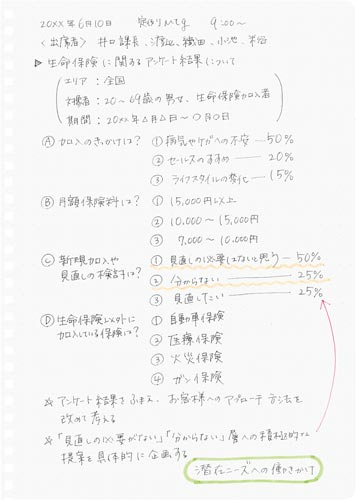 20XX年6月10日 定例Mtg 9:00〜
〈出席者〉 井口課長、渡辺、織田、小池、米谷
▷生命保険に関するアンケート結果について
エリア：全国
対象者：20〜69歳の男女、生命保険加入者
期間：20XX年△月△日〜〇月〇日
Ⓐ 加入のきっかけは？ ① 病気やケガへの不安 — 50%
② セールスのすすめ — 20%
③ ライフスタイルの変化 — 15%
Ⓑ 月額保険料は？ ① 15,000円以上
② 10,000〜15,000円
③ 7,000〜10,000円
Ⓒ 新規加入や見直しの検討は？ ① 見直しの必要はないと思う — 50%
② 分からない — 25%
③ 見直したい — 25%
Ⓓ 生命保険以外に加入している保険は？ ① 自動車保険
② 医療保険
③ 火災保険
④ ガン保険
☆ アンケート結果をふまえ、お客様へのアプローチ方法を
改めて考える
☆ 「見直しの必要がない」「分からない」層への積極的な
提案を具体的に企画する
潜在ニーズへの働きかけ